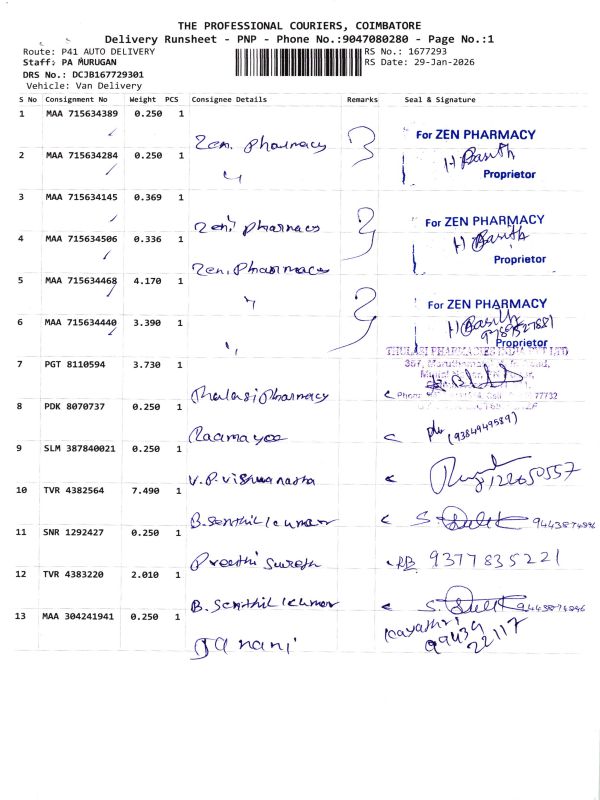 THE PROFESSIONAL COURIERS, COIMBATORE
Delivery Runsheet - PNP - Phone No.:9047080280 - Page No.:1
Route: P41 AUTO DELIVERY
RS No.: 1677293
Staff: PA MURUGAN
RS Date: 29-Jan-2026
DRS No.: DCJB167729301
Vehicle: Van Delivery
S No Consignment No Weight PCS Consignee Details Remarks Seal & Signature
1 MAA 715634389 0.250 1 Zen. Pharmacy
For ZEN PHARMACY
H Basith
Proprietor
2 MAA 715634284 0.250 1 "
3 MAA 715634145 0.369 1 Zen. Pharmacy
For ZEN PHARMACY
H Basith
Proprietor
4 MAA 715634506 0.336 1 Zen. Pharmacy
5 MAA 715634468 4.170 1 "
For ZEN PHARMACY
H Basith
9789527881
Proprietor
6 MAA 715634440 3.390 1 "
7 PGT 8110594 3.730 1 Thulasi Pharmacy
THULASI PHARMACIES INDIA PVT LTD
8 PDK 8070737 0.250 1 Raamayee
(9384949589)
9 SLM 387840021 0.250 1 V.P. Vishwanatha
10 TVR 4382564 7.490 1 B. Senthil kumar
11 SNR 1292427 0.250 1 Preethi Suresh
9377835221
12 TVR 4383220 2.010 1 B. Senthil kumar
13 MAA 304241941 0.250 1 Janani
Kayathri
99439
22117